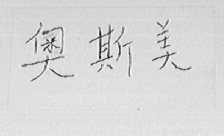 奥斯美